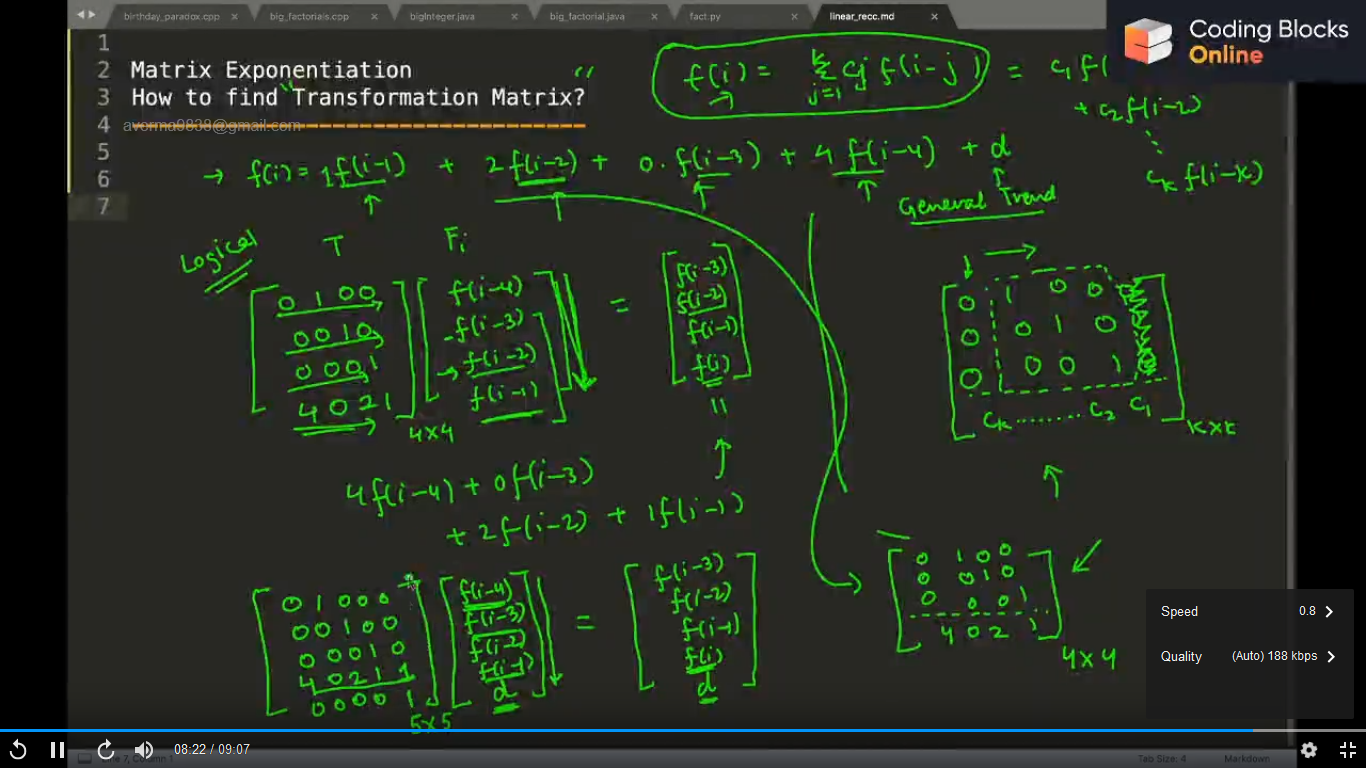 birthday_paradox.cpp × big_factorials.cpp × bigInteger.java × big_factorial.java × fact.py × linear_recc.md ×
Coding Blocks
Online
1
2 Matrix Exponentiation
3 How to find "Transformation Matrix?"
4 ------------------------------------
averma9838@gmail.com
5
6
7
f(i) = Σ cj f(i-j) = c1 f(
k
j=1
+ c2 f(i-2)
ck f(i-k)
→ f(i) = 1f(i-1) + 2f(i-2) + 0.f(i-3) + 4f(i-4) + d
General Trend
Logical
T Fi
0 1 0 0 f(i-4) f(i-3)
0 0 1 0 f(i-3) = f(i-2)
0 0 0 1 → f(i-2) f(i-1)
4 0 2 1 f(i-1) f(i)
4x4
0 1 0 0
0 0 1 0
0 0 0 1
ck ........ c2 c1
kxk
4f(i-4) + 0f(i-3)
+ 2f(i-2) + 1f(i-1)
0 1 0 0 0 f(i-4) f(i-3)
0 0 1 0 0 f(i-3) f(i-2)
0 0 0 1 0 f(i-2) = f(i-1)
4 0 2 1 1 f(i-1) f(i)
0 0 0 0 1 d d
5x5
0 1 0 0
0 0 1 0
0 0 0 1
4 0 2 1
4x4
Speed 0.8
Quality (Auto) 188 kbps
08:22 / 09:07
Line 7, Column 1 Tab Size: 4 Markdown